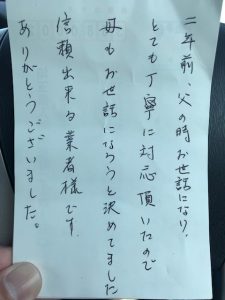 二年前、父の時お世話になり、
とても丁寧に対応頂いたので
母もお世話になろうと決めてました
信頼出来る業者様です。
ありがとうございました。